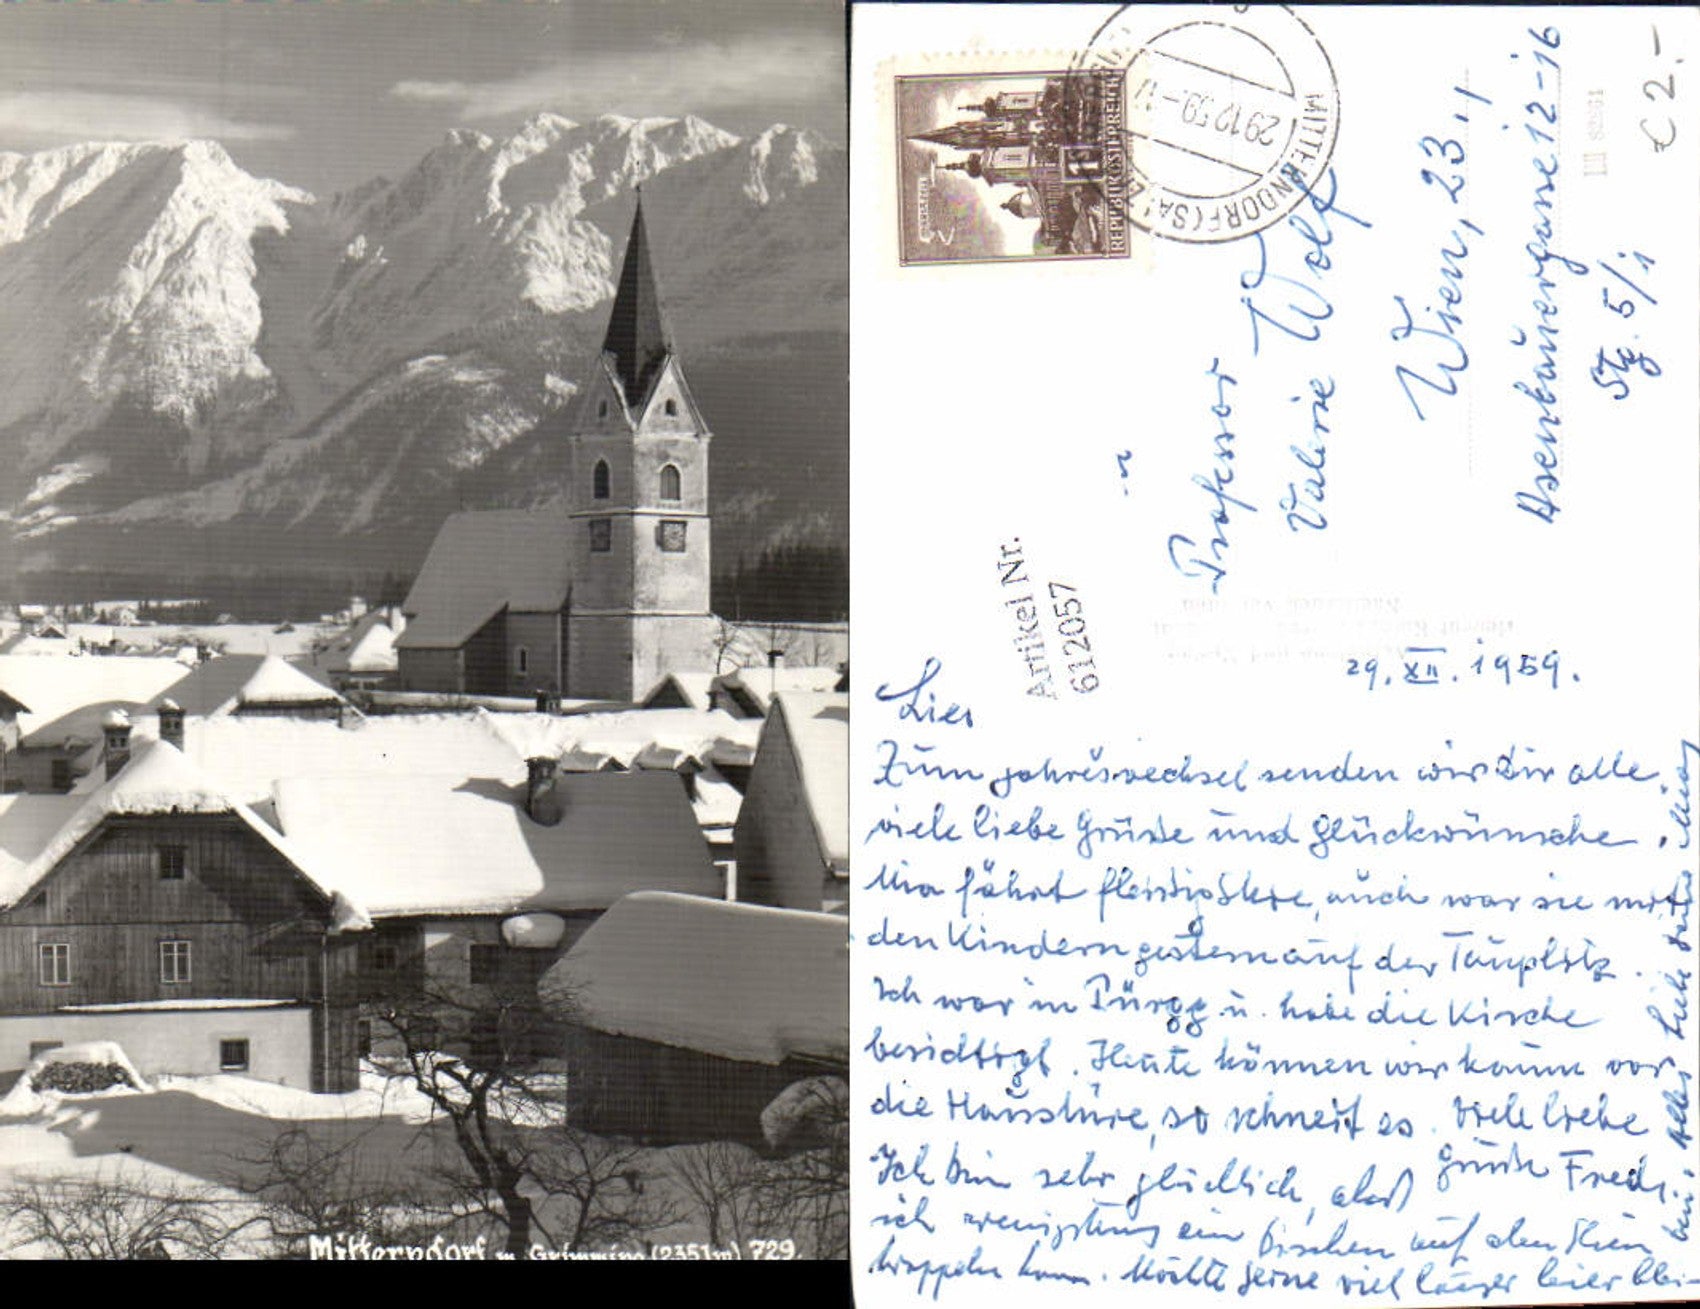 Mitterndorf m. Grimming (2351m) 729.
REPUBLIK ÖSTERREICH
MITTERNDORF (SA
29.12.59.-17
Professor
Valerie Wolf
Wien, 23.,
Asenbauergasse 12-16
Stg. 5/1
€ 2.-
Artikel Nr.
612057
29. XII. 1959.
Zum Jahreswechsel senden wir Dir alle
viele liebe Grüße und Glückwünsche.
Mia fährt fleissig Skie, auch war sie mit
den Kindern gestern auf der Tauplitz.
Ich war in Pürgg u. habe die Kirche
besichtigt. Heute können wir kaum vor
die Haustüre, so schneit es. Viele liebe
Grüße Fredi.
Ich bin sehr glücklich, daß
ich wenigstens ein bischen auf den Skien
kann. Möchte gerne viel länger hier blei-
ben. Alles Liebe Deine Mia